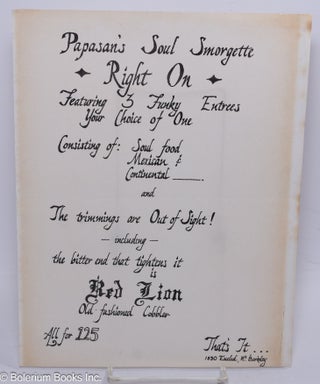 Papasan's Soul Smorgette
Right On
Featuring 3 Funky Entrees
Your Choice of One
Consisting of: Soul food
Mexican &
Continental
and
The trimmings are Out of Sight!
— including —
the bitter end that tightens it
is
Red Lion
Old fashioned Cobbler
All for 1.25
That's It...
1850 Euclid,
© Bolerium Books Inc.